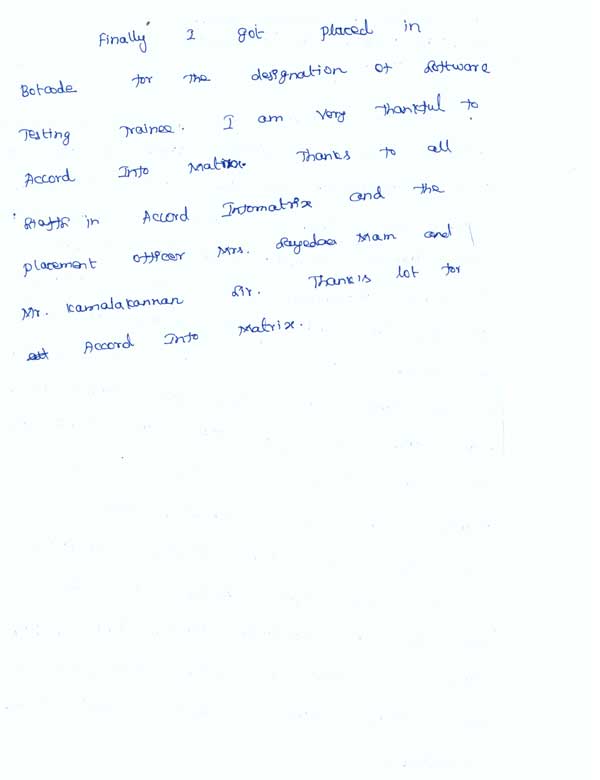 Finally I got placed in
Botcode for the designation of Software
Testing Trainee. I am very thankful to
Accord Info Matrix. Thanks to all
Staffs in Accord Infomatrix and the
placement officer Mrs. Sayedaa Mam and
Mr. Kamalakannan Sir. Thanks lot for
Accord Info Matrix.